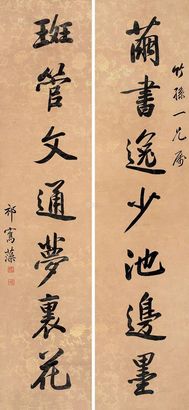 竹孫一兄屬
繭書逸少池邊墨
斑管文通夢裏花
祁寯藻